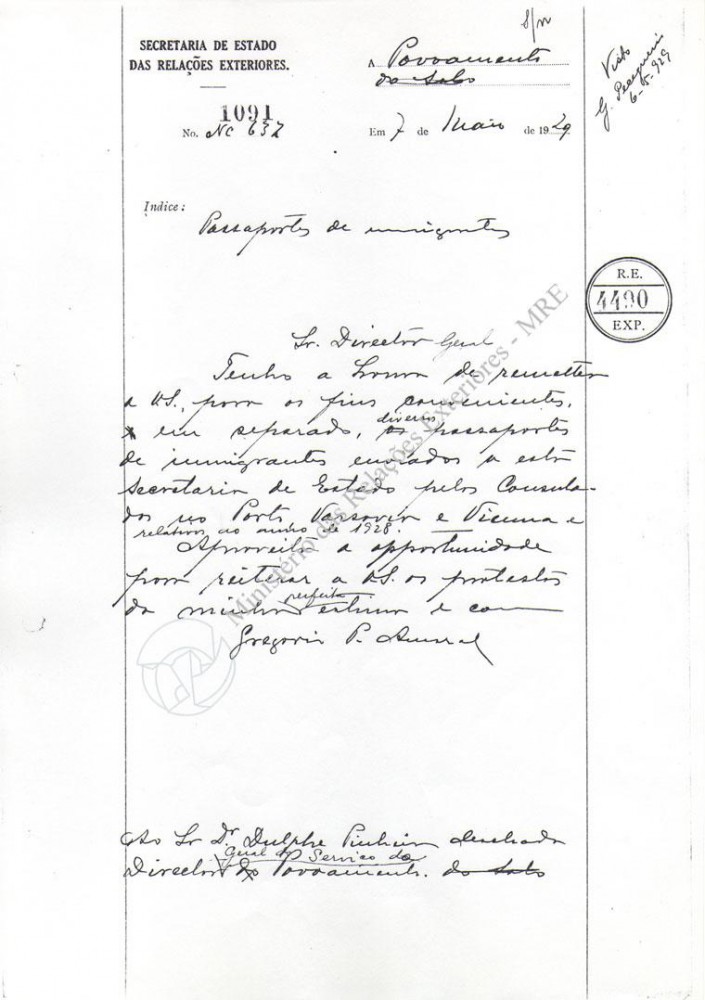 S/n
SECRETARIA DE ESTADO
DAS RELAÇÕES EXTERIORES.
A Povoamento
do Solo
Visto
G.
6-5-929
1091
No. NC 637
Em 7 de Maio de 1929
Indice:
Passaportes de immigrantes
R.E.
4490
EXP.
Sr. Director Geral
Tenho a honra de remetter
a VS., para os fins convenientes,
em separado, os diversos passaportes
de immigrantes enviados a esta
Secretaria de Estado pelos Consula-
dos no Porto, Varsovia e Vienna e
relativos ao anno de 1928.
Aproveito a opportunidade
para reiterar a VS. os protestos
da minha perfeita estima e con
Gregorio P. Amaral
Ao Sr Dr Dulphe Pinheiro Machado
Director Geral do Serviço de
Povoamento. do Solo
Ministério das Relações Exteriores - MRE